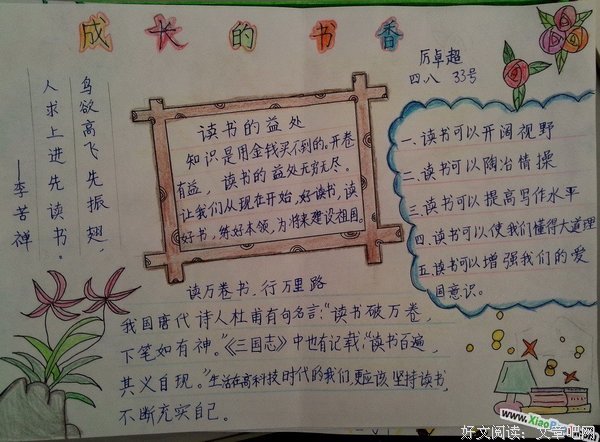 成长的书香
厉卓超
四八 33号
鸟欲高飞先振翅，
人求上进先读书。
——李苦禅
读书的益处
知识是用金钱买不到的，开卷
有益，读书的益处无穷无尽。
让我们从现在开始，好读书，读
好书，练好本领，为将来建设祖国。
一、读书可以开阔视野
二、读书可以陶冶情操
三、读书可以提高写作水平
四、读书可以使我们懂得大道理
五、读书可以增强我们的爱
国意识。
读万卷书，行万里路
我国唐代诗人杜甫有句名言："读书破万卷，
下笔如有神。"《三国志》中也有记载："读书百遍，
其义自现。"生活在高科技时代的我们，更应该坚持读书，
不断充实自己。
好文阅读：文章吧网